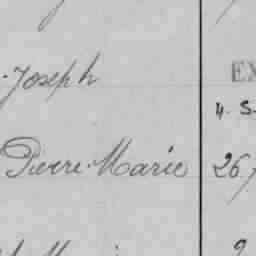 -Joseph
EX
4. S-
Pierre-Marie 26